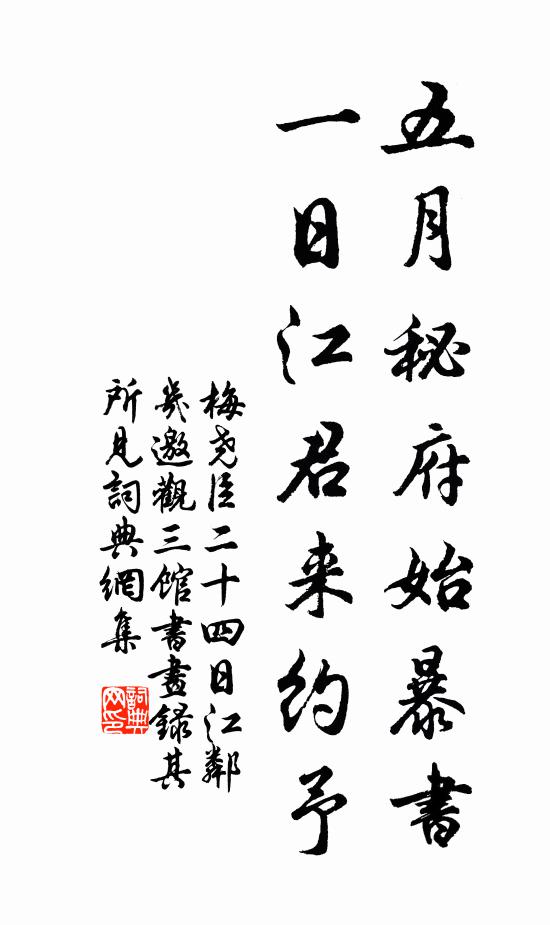 五月秘府始暴書
一日江君来約予
梅尧臣二十四日江鄰
幾邀觀三馆書畫録其
所見詞典網集
詞典网印